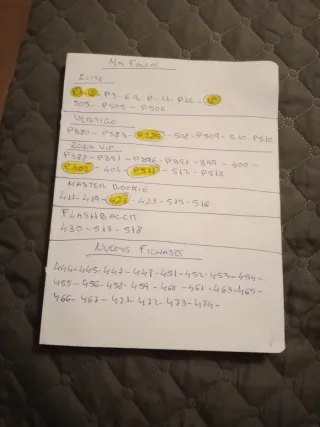 Mis Faltas
ELITE
P1-2 P3-6-9 P-11 P16-
503- P505- P506
VERTIGO
P380- P383- P385- 508- P509- 510- P510
ZONA VIP
P387- P391- P396- P397- 399- 400-
P402- 404- P511- 512- P513
MASTER ROOKIE
411-419-421-423-515-516
FLASHBACCK
430-517-518
NUEVOS FICHAJES
444-445-447-448-451-452-453-454-
455-456-458-459-460-461-463-465-
466-467-471-472-473-474-